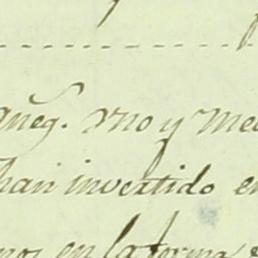 aneg. vno y med
han invertido en
nos en la forma e